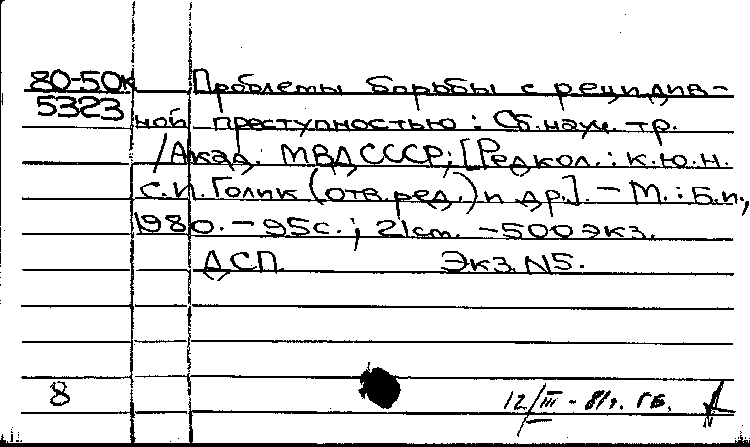 80-50к Проблемы борьбы с рецидив-
5323 ной преступностью: Сб. науч. тр.
/Акад. МВД СССР; [Редкол.: к.ю.н.
С.И. Голик (отв. ред.) и др.]. - М.: Б.и.,
1980. - 95с.; 21 cm. - 500 экз.
ДСП. Экз. N5.
8
12/III - 81г. ГБ.